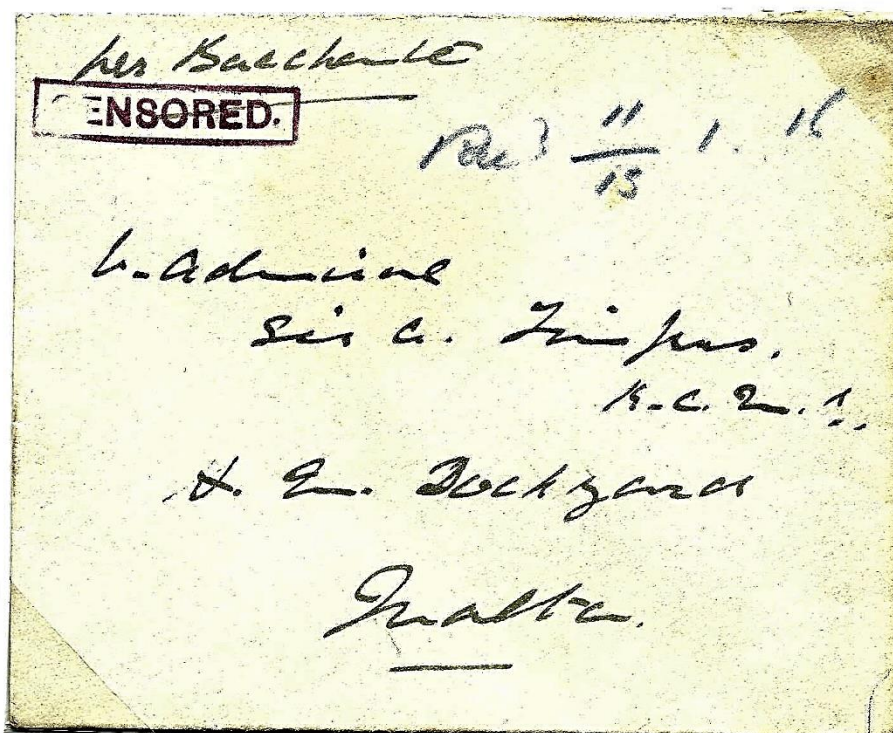 per Bacchante
CENSORED.
Rec'd 11/15 1. 16
V. Admiral
Sir A. Limpus.
K.C.M.G.
H. M. Dockyard
Malta.